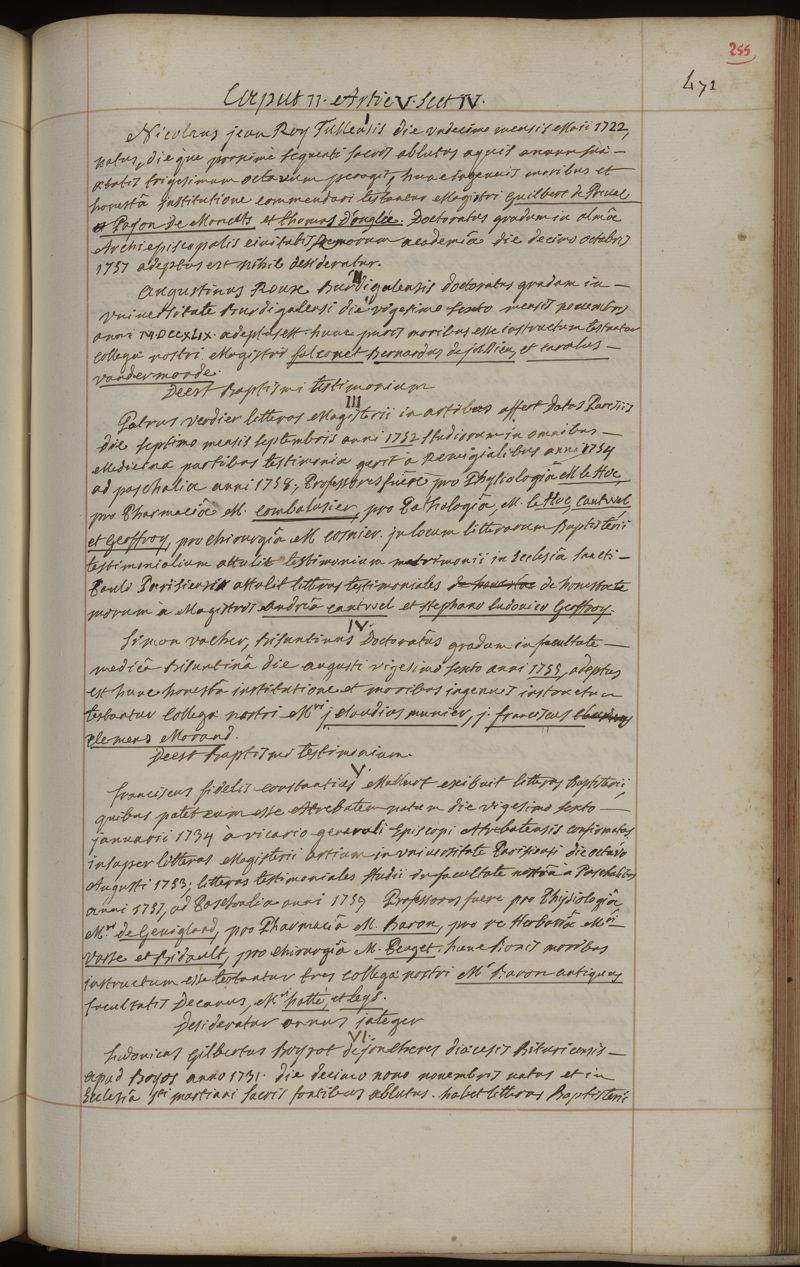 255
471
Caput II. Artic V. Sect IV.
I
Nicolaus jean Roy Tullensis die undecimo mensis Maii 1722,
natus, die que proximè sequenti sacris ablutus aquis annum suæ –
ætatis trigesimum octavum peragit, hunc ingenuis moribus et
honestâ institutione commendari testantur Magistri Guilbert de Preval
et Pajon De Moncets et thomas D'onglée. Doctoratus gradum in almâ
Archiepiscopalis civitatis Remorum academiâ die decimo octobris
1757 adeptus est nihil desideratur.
II
Augustinus Roux Burdigalensis doctoratus gradum in –
Universitate Burdigalensi die vigesimo sexto mensis novembris
anni adeptus est. hunc puris moribus esse instructum testantur
collegæ nostri Magistri falconet Bernardus de jussieu, et carolus –
vandermonde.
Deest Baptismi testimonium
III
Petrus verdier litteras Magisterii in artibus affert datas Parisiis
die septimo mensis septembris anni 1752 studiorum in omnibus –
Medicinæ partibus testimonia gerit à Remigialibus anni 1754
ad paschalia anni 1758; Professores fuêre pro Physiologiâ M. le Hoc,
pro Pharmaciâ M. combalusier, pro Pathologiâ, M. le Hoc, Cantwel
et Geoffroy, pro chirurgiâ M. cosnier. in locum litterarum Baptisterii
testimonialium attulit testimonium matrimonii in Ecclesiâ sancti –
Pauli Parisiensis attulit litteras testimoniales de honestate
morum à Magistris Andreâ cantwel et stephano ludovico Geoffroy.
IV.
Simon vacher, Bisuntinus Doctoratûs gradum in facultate –
medicâ Bisuntinâ die augusti vigesimo sexto anni 1755, adeptus
est hunc honestâ institutione et moribus ingenuis instructum
testantur collegæ nostri Mri j claudius munier, j. franciscus
clemens Morand.
Deest Baptismi testimonium.
V
franciscus fidelis constantius Mallent exibuit litteras Baptisterii
quibus patet eum esse Atrebatem natum die vigesimo sexto –
januarii 1734 à vicario generali Episcopi Attrebatensis confirmatas
insuper litteras Magisterii artium in universitate Parisiensi die octavo
Augusti 1753; litteras testimoniales studii in facultate nostrâ a Paschalibus
anni 1757, ad Paschalia anni 1759 Professores fuere pro Physiologiâ
Mri de Gevigland, pro Pharmaciâ M. Baron, pro re Herbariâ Mri
Vasse et Bidault, pro chirurgiâ M. Peaget. hunc Bonis moribus
instructum esse testantur tres collegæ nostri Mr Baron antiquus
facultatis Decanus, Mri pathé, et leys.
Desideratur annus integer
VI.
Ludovicus Gilbertus Boyrot dejoncheres diœcesis Bituricensis –
apud Boyos anno 1731. die decimo nono novembris natus et in
Ecclesiâ Sti martiani sacris fontibus ablutus. habet litteras Baptisterii